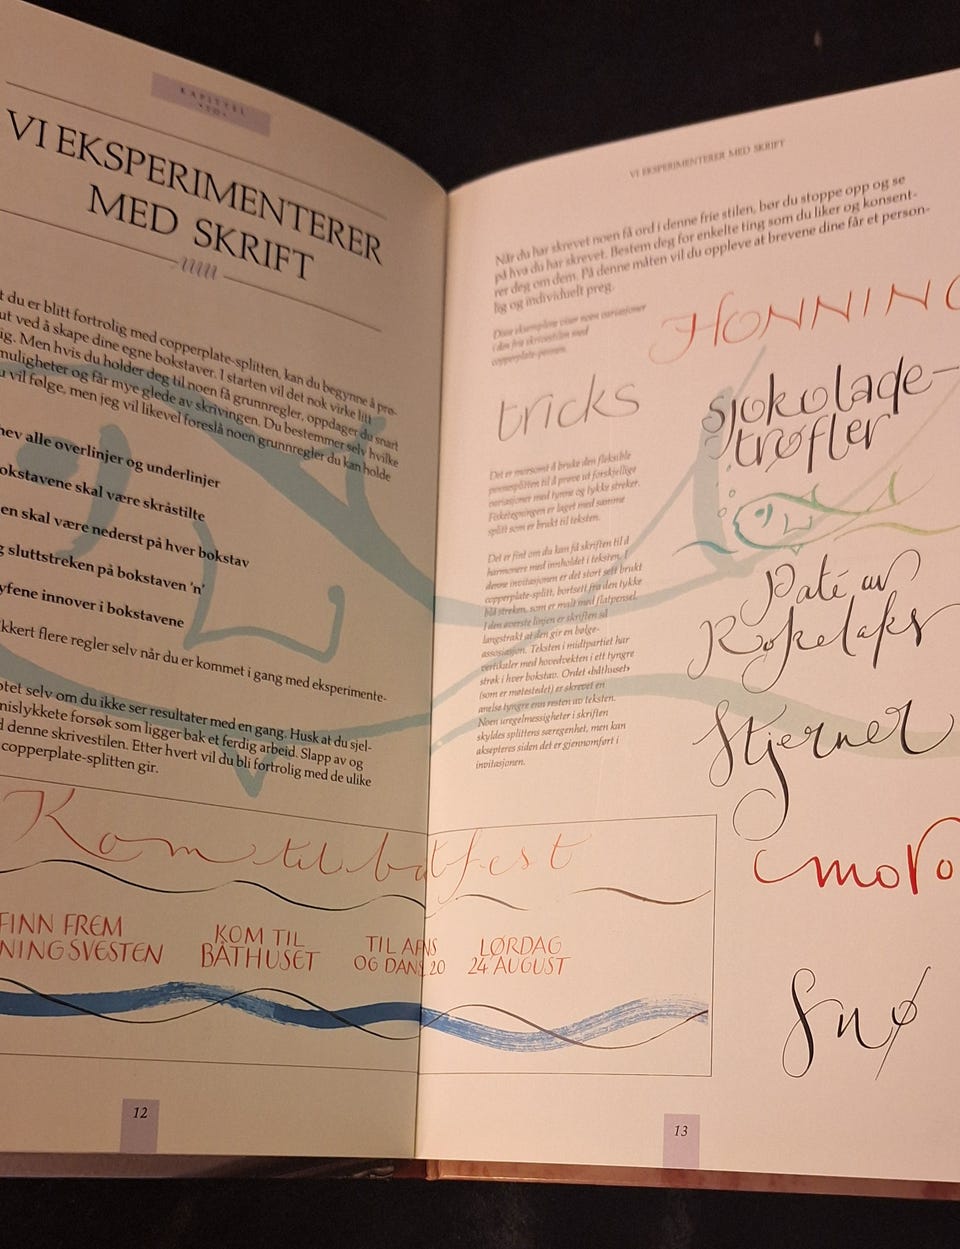 KAPITTEL
VI EKSPERIMENTERER
MED SKRIFT
t du er blitt fortrolig med copperplate-splitten, kan du begynne å prø-
ut ved å skape dine egne bokstaver. I starten vil det nok virke litt
ig. Men hvis du holder deg til noen få grunnregler, oppdager du snart
muligheter og får mye glede av skrivingen. Du bestemmer selv hvilke
u vil følge, men jeg vil likevel foreslå noen grunnregler du kan holde
hev alle overlinjer og underlinjer
okstavene skal være skråstilte
en skal være nederst på hver bokstav
g sluttstreken på bokstaven 'n'
yfene innover i bokstavene
kkert flere regler selv når du er kommet i gang med eksperimente-
otet selv om du ikke ser resultater med en gang. Husk at du sjel-
mislykkete forsøk som ligger bak et ferdig arbeid. Slapp av og
d denne skrivestilen. Etter hvert vil du bli fortrolig med de ulike
copperplate-splitten gir.
Kom til båtfest
FINN FREM
NINGSVESTEN
KOM TIL
BÅTHUSET
TIL
OG DANS 20
LØRDAG
24 AUGUST
12
VI EKSPERIMENTERER MED SKRIFT
Når du har skrevet noen få ord i denne frie stilen, bør du stoppe opp og se
på hva du har skrevet. Bestem deg for enkelte ting som du liker og konsent-
rer deg om dem. På denne måten vil du oppleve at brevene dine får et person-
lig og individuelt preg.
Disse eksemplene viser noen variasjoner
i den frie skrivestilen med
copperplate-pennen.
HONNING
tricks
sjokolade-
trøfler
Det er morsomt å bruke den fleksible
pennesplitten til å prøve ut forskjellige
variasjoner med tynne og tykke streker.
Fisketegningen er laget med samme
splitt som er brukt til teksten.
Det er fint om du kan få skriften til å
harmonere med innholdet i teksten. I
denne invitasjonen er det stort sett brukt
copperplate-splitt, bortsett fra den tykke
blå streken, som er malt med flatpensel.
I den øverste linjen er skriften så
langstrakt at den gir en bølge-
assosiasjon. Teksten i midtpartiet har
vertikaler med hovedvekten i ett tyngre
strøk i hver bokstav. Ordet ‹båthuset›
(som er møtestedet) er skrevet en
anelse tyngre enn resten av teksten.
Noen uregelmessigheter i skriften
skyldes splittens særegenhet, men kan
aksepteres siden det er gjennomført i
invitasjonen.
Paté av
Røkelaks
Stjerner
moro
Snø
13